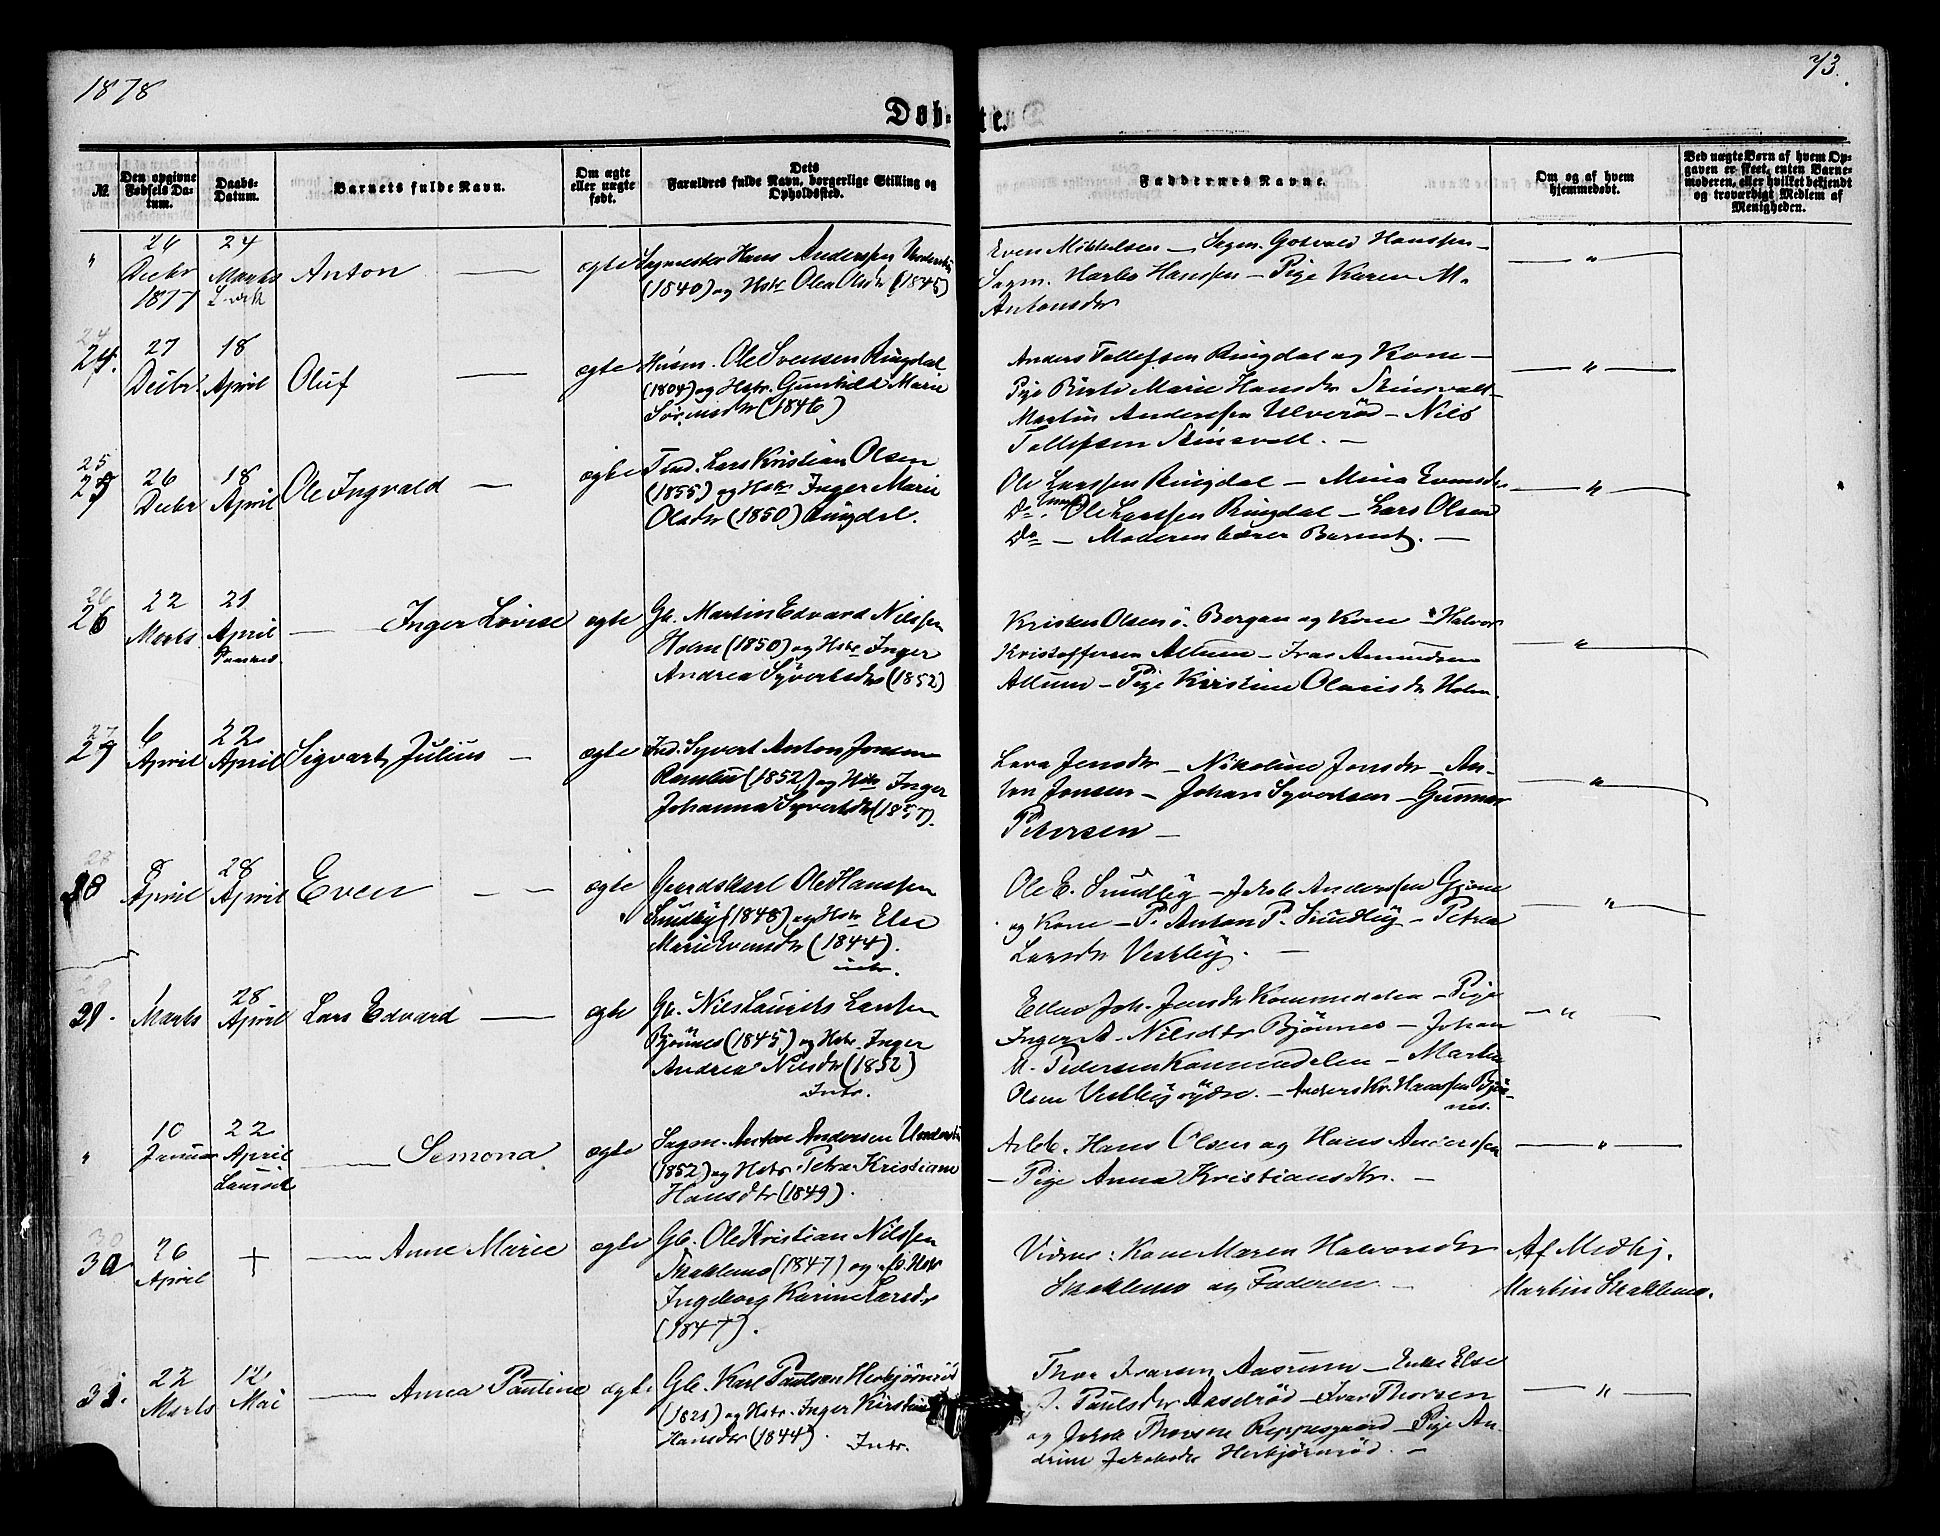 1878
73.
Døbte.
№
Den opgivne Fødsels Datum.
Daabs-Datum.
Barnets fulde Navn.
Om ægte eller uægte født.
Dets Forældres fulde Navn, borgerlige Stilling og Opholdssted.
Faddernes Navne.
Om og af hvem hjemmedøbt.
Ved uægte Børn af hvem Opgaven er skeet, enten Barnemoderen, eller hvilket bekjendt og troværdigt Medlem af Menigheden.
" 26 Decbr 1877
24 Marts
Anton
ægte
Sagmester Hans Anderssen
(1840) og Hstr Olea Olsdr (1845)
Even Mikkelsen — Sagm. Gotvald Hanssen —
Sagm. Harbo Hanssen — Pige Karen M.
Antonsdr
"
24
24. 27 Decbr
18 April
Oluf
ægte
Husm. Ole Svensen Ringdal
(1804) og Hstr. Gunhild Marie
Sørensdr (1846)
Anders Tollefsen Ringdal og Kone —
Pige Birte Marie Hansdr
Martin Anderssen Ulverød — Nils
Tollefsen
"
25
25 26 Decbr
18 April
Ole Ingvald
ægte
Lars Kristian Olsen
(1855) og Hstr Inger Marie
Olsdr (1850) Ringdal.
Ole Larssen Ringdal — Mina Evensdr
Do. Ole Larssen Ringdal — Lars Olsen
Do — Moderen bærer Barnet. —
"
26
26 22 Marts
21 April
Inger Lovise
ægte
Gb. Martin Edvard Nilssen
Holm (1850) og Hstr Inger
Andrea Syvertsdr (1852)
Kristen Olsen ø. Bergan og Kone — Halvor
Kristoffersen Allum — Ivar Amundsen
Allum — Pige Kirstine Olausdr Holm.
"
27
27 6 April
22 April
Sigvart Julius
ægte
Ind. Syvert Anton Jonsen
(1852) og Hstr Inger
Johanna Syvertsdr (1857).
Lova Jensdr — Nikoline Jonsdr — An-
ton Jonsen — Johan Syvertsen — Gunner
Petersen —
"
28
28 8 April
28 April
Even
ægte
Gaardskarl Ole Hanssen
Sundby (1848) og Hstr Else
Marie Evensdr (1844).
intr.
Ole E. Sundby — Jakob Anderssen
og Kone — P. Anton P. Sundby — Petrea
Larsdr Vestby. —
"
29
29. 1 Marts
28 April
Lars Edvard
ægte
Gb. Nils Laurits Larssen
Bjønnes (1845) og Hstr. Inger
Andrea Nilsdr (1852)
Intr.
Ellen Joh. Jensdr Kommedalen — Pige
Inger A. Nilsdtr Bjønnes — Johan
M. Pedersen Kommedalen — Martin
Olsen Vestby øvdre. — Anders Kr. Hanssen Bjøn-
nes.
"
" 10 Januar
22 April
Semona.
ægte
Sagm. Anton Andersen
(1852) og Hstr. Petra Kristiane
Hansdtr (1849).
Arbb. Hans Olsen og Hans Anderssen
— Pige Anna Kristiansdr. —
"
30
30 26 April
+
Anne Marie
ægte
Gb. Ole Kristian Nilssen
(1847) og Hstr
Ingeborg Karine Larsdr
(1847).
Vidne: Kone Maren Halvorsdr
og Faderen —
Af Medhj.
Martin
31. 22 Marts
12 Mai
Anna Pauline
ægte
Gb. Karl Paulsen Herbjørnrød
(1821) og Hstr. Inger Kirstine
Hansdtr (1844).
Intr.
Thor Ivarsen Aasrum — Enke Else
J. Paulsdr Aaselrød — Ivar Thorsen
og Jakob Thorsen — Pige An-
drine Jakobsdr Herbjørnrød. —
"